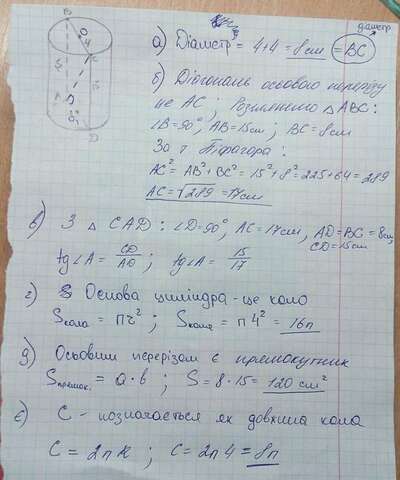 діаметр
а) Діаметр = 4+4 = 8см = BC
б) Діагональ осьового перерізу
це AC; Розглянемо △ABC:
∠B=90°, AB=15см; BC=8см
За т Піфагора:
AC² = AB² + BC² = 15² + 8² = 225 + 64 = 289
AC = √289 = 17см
в) З △ CAD: ∠D=90°, AC=17см, AD=BC=8см,
CD=15см
tg∠A = CD/AD; tg∠A = 15/17
г) Основа циліндра - це коло
Sкола = πr²; Sкола = π4² = 16π
д) Осьовим перерізом є прямокутник
Sпрямок. = a·b; S = 8·15 = 120 см²
є) C - позначається як довжина кола
C = 2πR; C = 2π4 = 8π